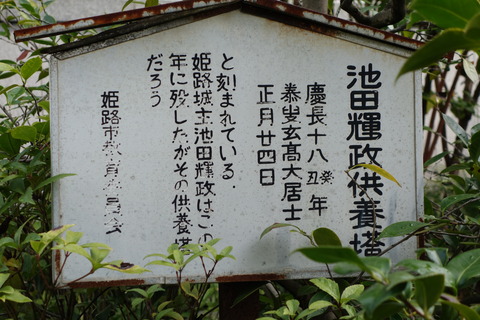 池田輝政供養塔
慶長十八癸丑年
泰叟玄高大居士
正月廿四日
と刻まれている.
姫路城主池田輝政はこの
年に歿したがその供養塔
だろう
姫路市教育委員会